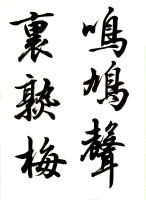 鳴鳩聲
裏熟梅